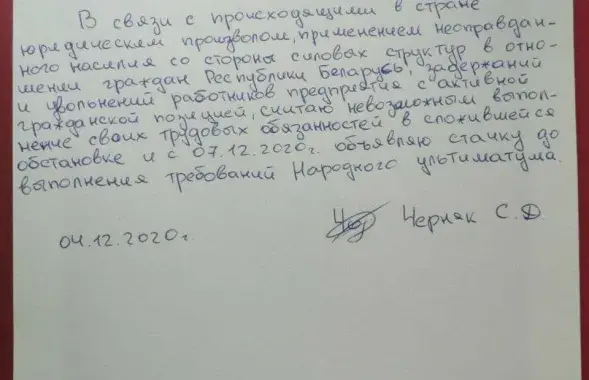 В связи с происходящими в стране
юридическим произволом, применением неоправдан-
ного насилия со стороны силовых структур в отно-
шении граждан Республики Беларусь, задержаний
и увольнений работников предприятия с активной
гражданской позицией, считаю невозможным выпол-
нение своих трудовых обязанностей в сложившейся
обстановке и с 07.12.2020г. объявляю стачку до
выполнения требований Народного ультиматума.
Черняк С.Д.
04.12.2020г.